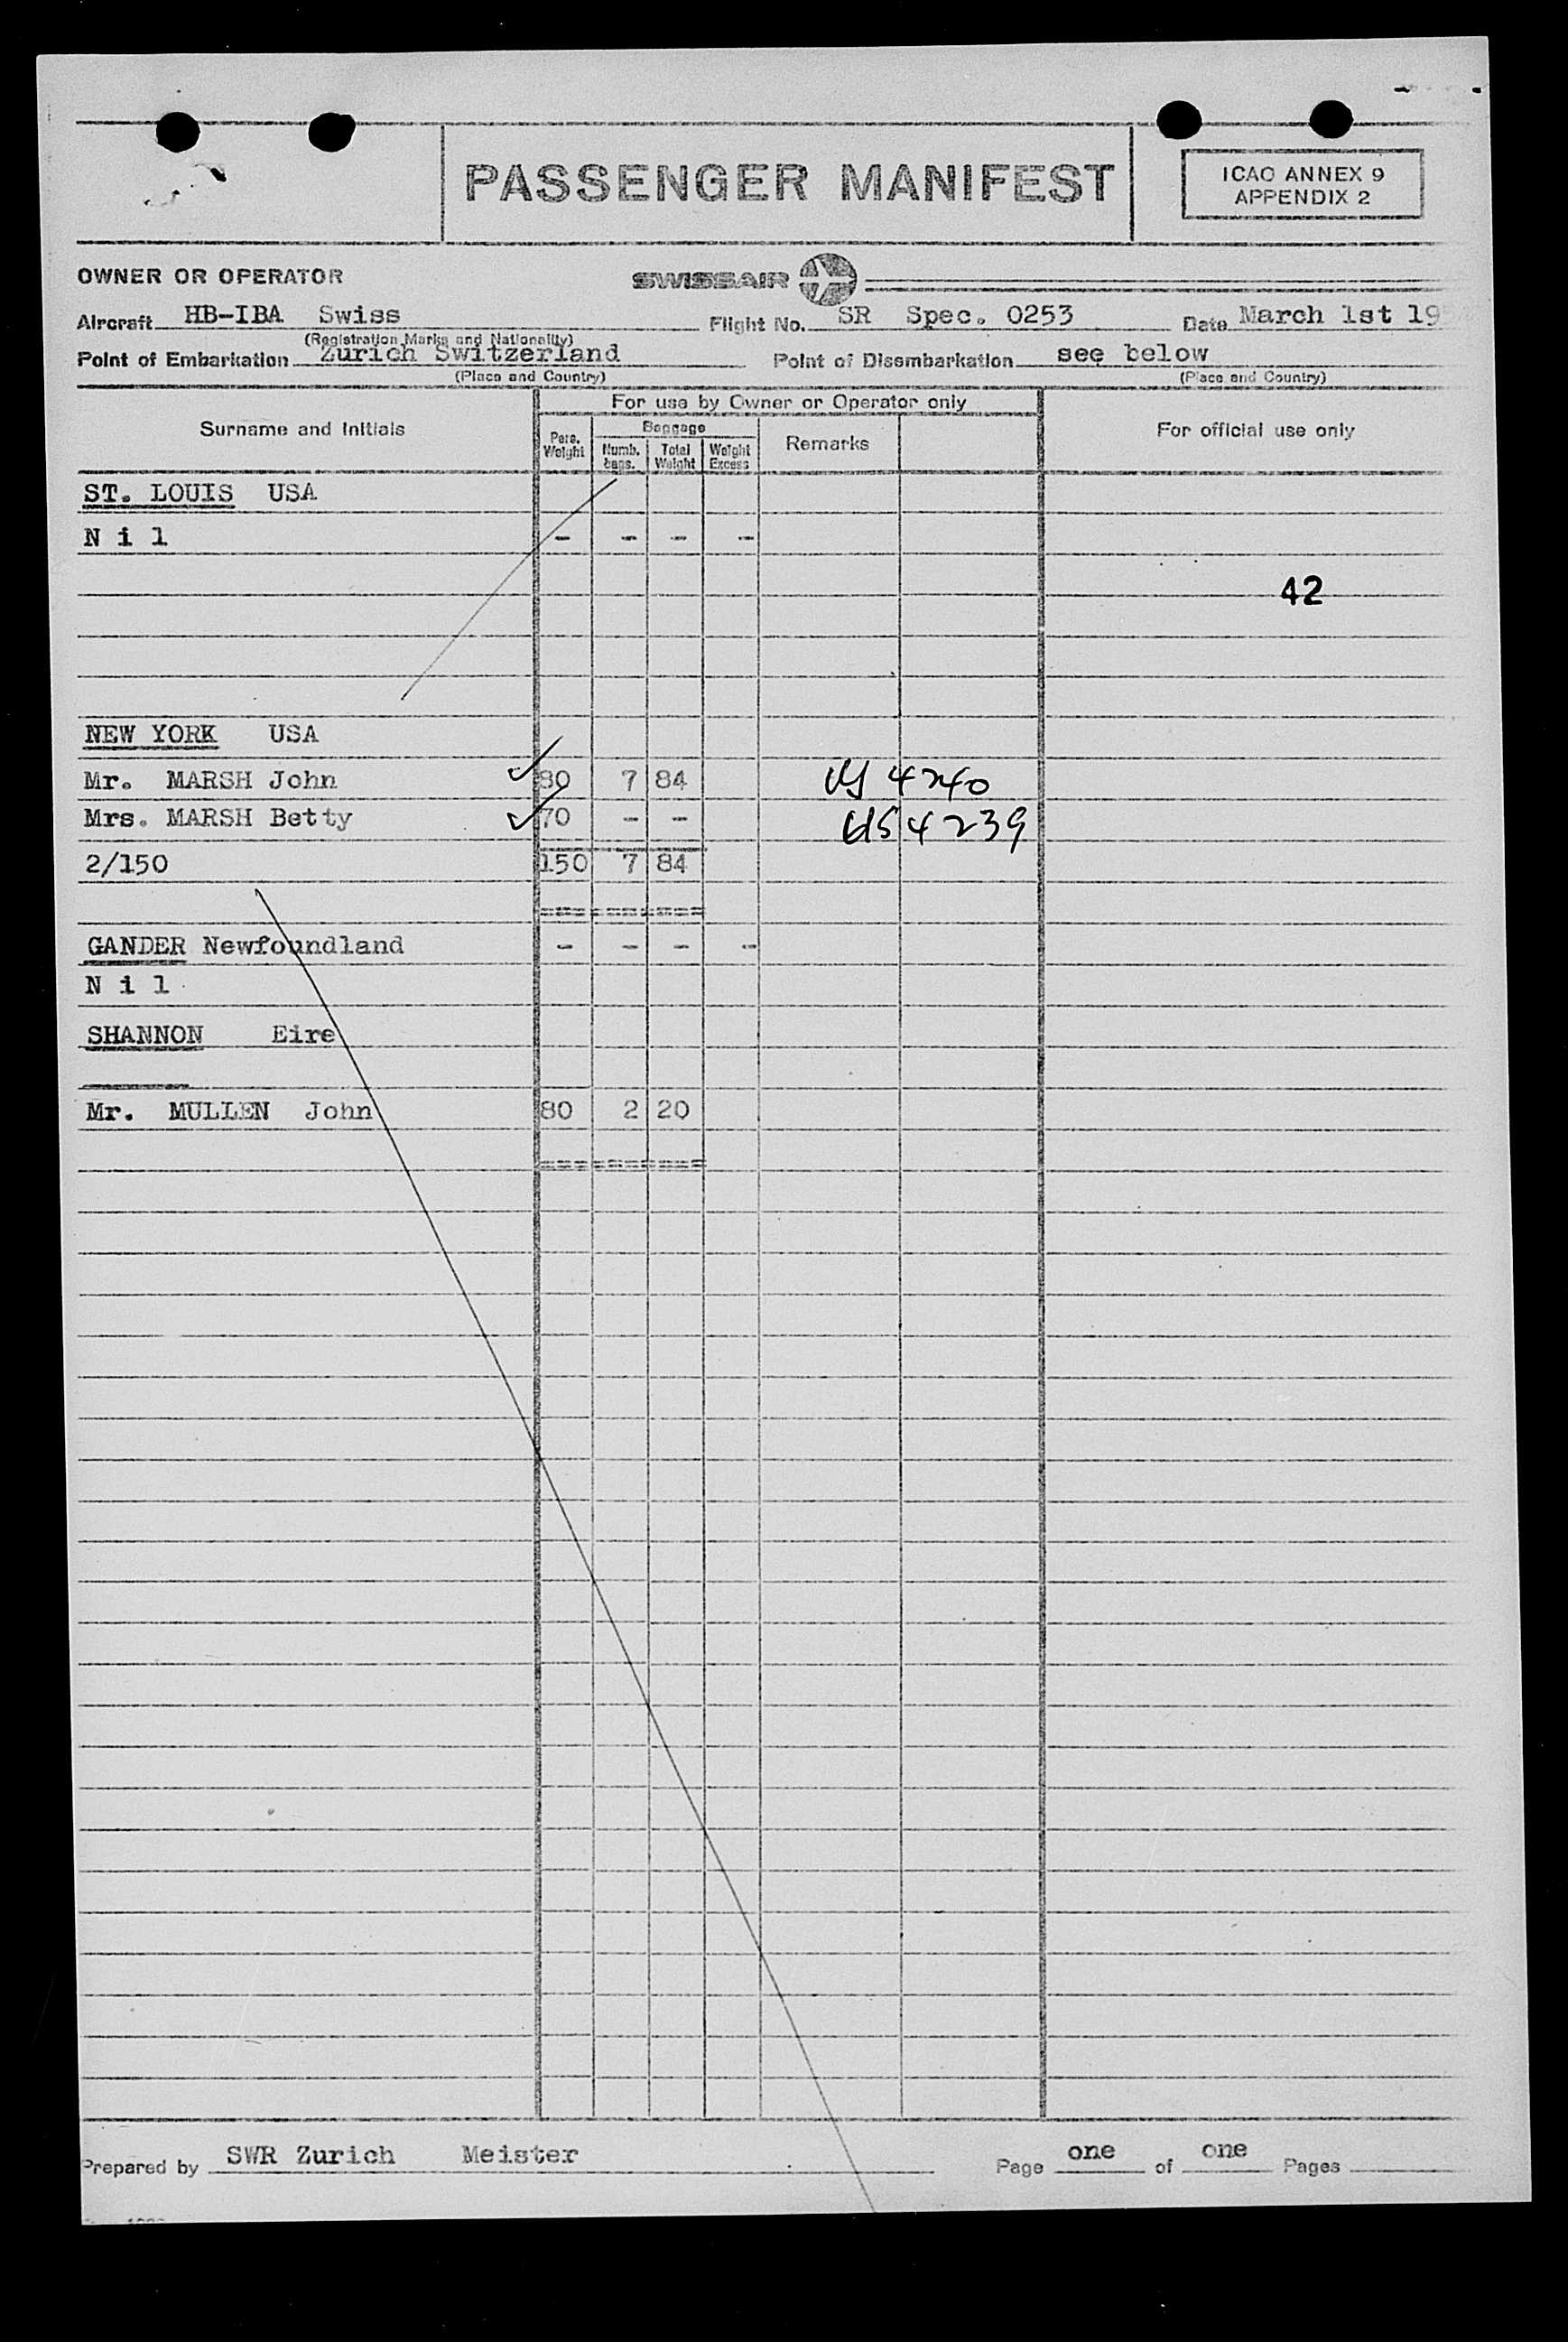 PASSENGER MANIFEST
ICAO ANNEX 9
APPENDIX 2
OWNER OR OPERATOR SWISSAIR
Aircraft HB-IBA Swiss Flight No. SR Spec. 0253 Date March 1st 19
(Registration Marks and Nationality)
Point of Embarkation Zurich Switzerland Point of Disembarkation see below
(Place and Country) (Place and Country)
For use by Owner or Operator only
Surname and Initials Pers. Weight Baggage Numb. bags. Total Weight Weight Excess Remarks For official use only
ST. LOUIS USA
N i l - - - -
42
NEW YORK USA
Mr. MARSH John 80 7 84 4240
Mrs. MARSH Betty 70 - - US 4239
2/150 150 7 84
GANDER Newfoundland - - - -
N i l
SHANNON Eire
Mr. MULLEN John 80 2 20
Prepared by SWR Zurich Meister Page one of one Pages